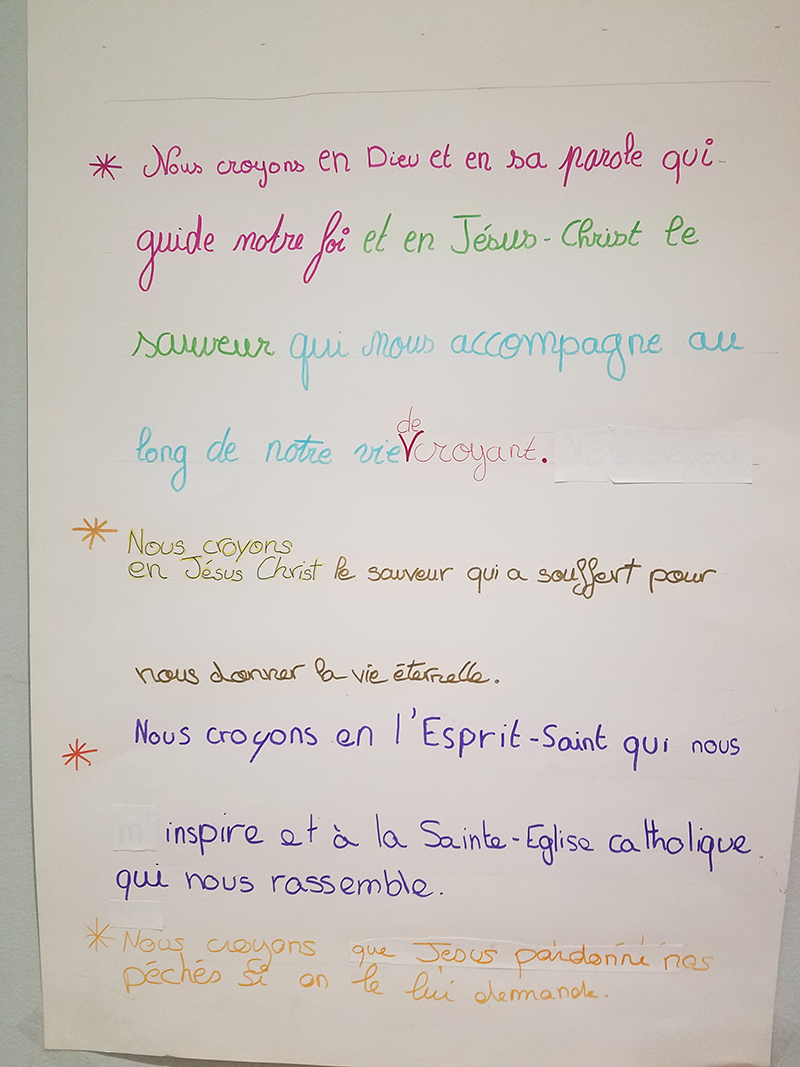 * Nous croyons en Dieu et en sa parole qui
guide notre foi et en Jésus-Christ le
sauveur qui nous accompagne au
de
long de notre vie V croyant.
* Nous croyons
en Jésus Christ le sauveur qui a souffert pour
nous donner la vie éternelle.
* Nous croyons en l'Esprit-Saint qui nous
inspire et à la Sainte-Eglise catholique
qui nous rassemble.
* Nous croyons que Jésus pardonne nos
péchés si on le lui demande.